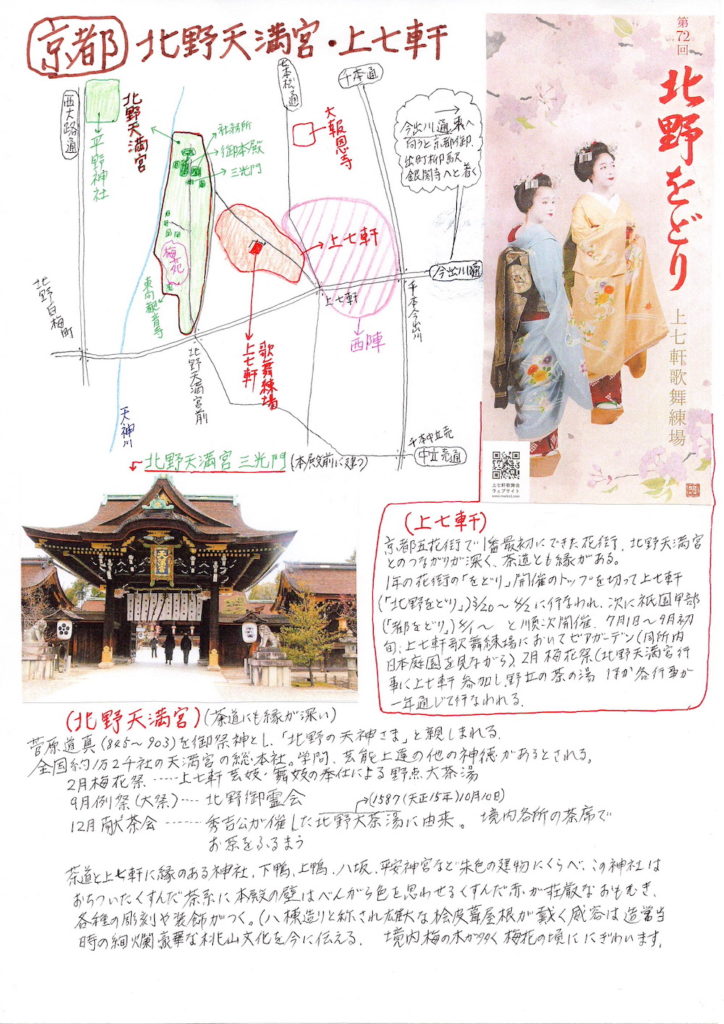 京都 北野天満宮・上七軒
西大路通
平野神社
北野天満宮
社務所
御本殿
三光門
梅花
東向観音寺
北野白梅町
天神川
北野天満宮前
七本松通
千本通
大報恩寺
今出川通 東へ
向うと京都御
出町柳駅
銀閣寺へと着く
上七軒
今出川通
上七軒
千本今出川
西陣
歌舞練場
上七軒
千本中立売
中立売通
第72回
北野をどり
上七軒歌舞練場
上七軒歌舞会
ウェブサイト
北野天満宮 三光門(本殿前に建つ)
(上七軒)
京都五花街で1番最初にできた花街、北野天満宮
とのつながりが深く、茶道とも縁がある。
1年の花街の「をどり」開催のトップを切って上七軒
(「北野をどり」)3/20~4/2に行なわれ、次に祇園甲部
(「都をどり」)4/1~ と順次開催、7月1日~9月初
旬、上七軒歌舞練場においてビアガーデン(同所内
日本庭園を見ながら)2月梅花祭(北野天満宮行
事に上七軒参加し、野立の茶の湯 ほか各行事が
一年通じて行なわれる。
(北野天満宮)(茶道にも縁が深い)
菅原道真(845~903)を御祭神とし、「北野の天神さま」と親しまれる。
全国約1万2千社の天満宮の総本社。学問、芸能上達の他の神徳があるとされる。
2月梅花祭 ‥‥‥上七軒 芸妓・舞妓の奉仕による野点大茶湯
9月例祭(大祭)‥‥ 北野御霊会
(1587(天正15年)10月10日)
12月献茶会 ‥‥‥‥ 秀吉公が催した北野大茶湯に由来。 境内各所の茶席で
お茶をふるまう
茶道と上七軒に縁のある神社、下鴨、上鴨、八坂、平安神宮など朱色の建物にくらべ、この神社は
おちついたくすんだ茶系に本殿の壁はべんがら色を思わせるくすんだ赤が荘厳なおもむき、
各種の彫刻や装飾がつく。(八棟造りと称され雄大な桧皮葺屋根が戴く威容は造営当
時の絢爛豪華な桃山文化を今に伝える。 境内梅の木が多く梅花の頃ににぎわいます。